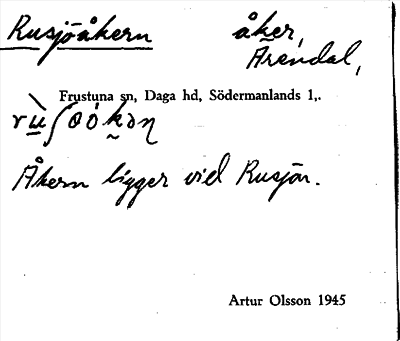 Rusjöåkern åker,
Årendal,
Frustuna sn, Daga hd, Södermanlands l,.
Åkern ligger vid Rusjön.
Artur Olsson 1945